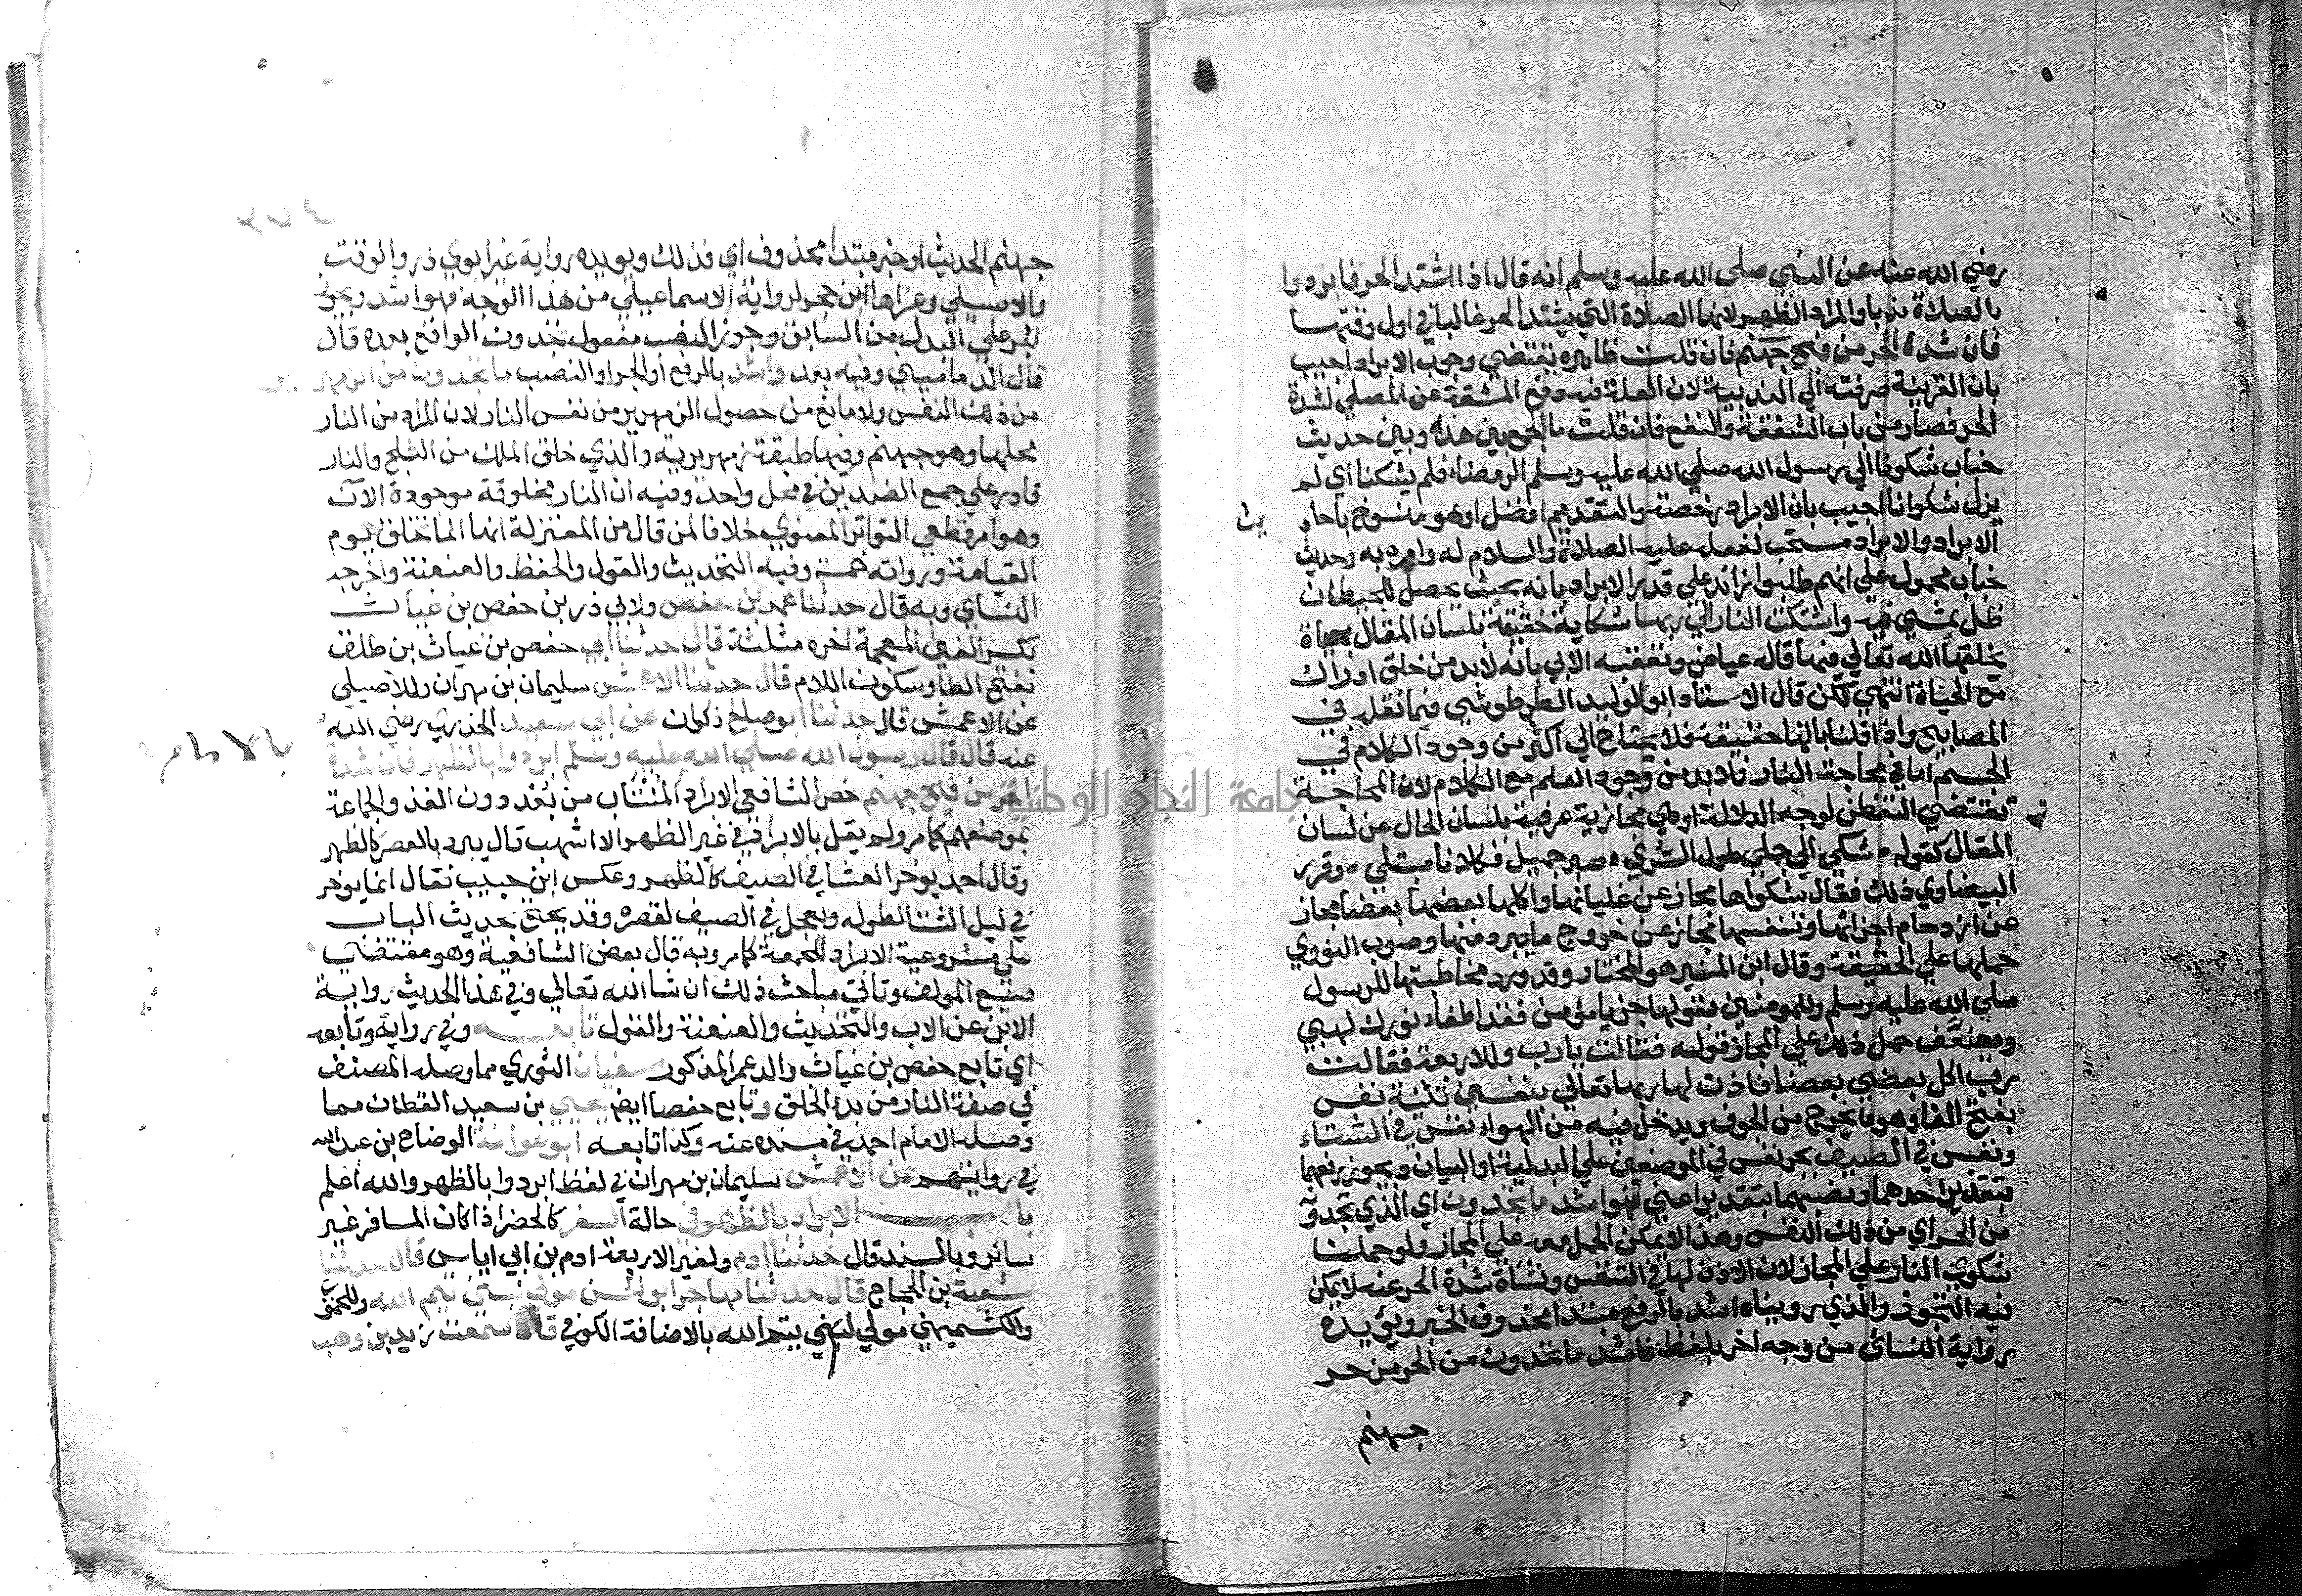 رضي الله عنه عن النبي صلى الله عليه وسلم انه قال اذا اشتد الحر فابردوا
بالصلاة ندبا والمراد الظهر لانها الصلاة التي يشتد الحر غالبا في اول وقتها
فان شدة الحر من فيح جهنم فان قلت ظاهره يقتضي وجوب الابراد اجيب
بان القرينة صرفته الي الندبية لان العلة فيه دفع المشقة عن المصلي لشدة
الحر فصار من باب الشفقة والنفع فان قلت ما الجمع بين هذا وبين حديث
خباب شكونا الي رسول الله صلي الله عليه وسلم الرمضاء فلم يشكنا اي لم
يزل شكوانا اجيب بان الابراد رخصة والتقديم افضل او هو منسوخ باحاديث
الابراد والابراد مستحب لفعله عليه الصلاة والسلام له وامره به وحديث
خباب محمول علي انهم طلبوا زائد علي قدر الابراد بانه بحيث يحصل للحيطان
ظل يمشي فيه واشتكت النار الي ربها شكاية حقيقة بلسان المقال بحياة
يخلقها الله تعالي فيها قاله عياض وتعقبه الابي بانه لا بد من خلق ادراك
مع الحياة انتهي لكن قال الاستاد ابو الوليد الطرطوشي فيما نقله في
المصابيح واذا قلنا بانها حقيقة فلا يحتاج الي اكثر من وجود الكلام في
الجسم اما في محاجة النار فلا بد من وجود العلم مع الكلام لان المحاجة
تقتضي التفطن لوجه الدلالة او هي مجازية عرفية بلسان الحال عن لسان
المقال كقوله شكي الي جملي طول السري صبر جميل فكلانا مبتلي وقرر
البيضاوي ذلك فقال شكواها مجاز عن غليانها واكلها بعضها بعضا مجاز
عن ازدحام اجزائها وتنفسها مجاز عن خروج ما يبرز منها وصوب النووي
حملها علي الحقيقة وقال ابن المنير هو المختار وقد ورد مخاطبتها للرسول
صلي الله عليه وسلم وللمومنين بقولها جز يا مؤمن فقد اطفأ نورك لهبي
ويضعف حمل ذلك علي المجاز قوله فقالت يا رب وللاربعة فقالت
رب اكل بعضي بعضا فاذن لها ربها تعالي بنفسين تثنية نفس
بفتح الفا وهو ما يخرج من الجوف ويدخل فيه من الهواء نفس في الشتاء
ونفس في الصيف بجر نفس في الموضعين علي البدلية او البيان ويجوز رفعهما
بتقدير احدهما ونصبهما بتقدير اعني فهو اشد ما تجدون اي الذي تجدونه
من الحر اي من ذلك النفس وهذا لا يمكن الحمل معه علي المجاز ولو حملنا
شكوي النار علي المجاز لان الاذن لها في التنفس ونشأة شدة الحر عنه لا يمكن
فيه التجوز والذي رويناه اشد بالرفع مبتدا محذوف الخبر ويؤيده
رواية النسائ من وجه اخر بلفظ فاشد ما تجدون من الحر من حر
جهنم
جهنم الحديث او خبر مبتدا محذوف اي فذلك ويويده رواية غير ابوي ذر والوقت
والاصيلي وعزاها ابن حجر لرواية الاسماعيلي من هذا الوجه فهو اشد ويجوز
الجر علي البدل من السابق وجوز النصب مفعول تجدون الواقع بعده قال
قال الدماميني وفيه بعد واشد بالرفع او الجر او النصب ما تجدون من الزمهرير
من ذلك النفس ولا مانع من حصول الزمهرير من نفس النار لان المراد من النار
محلها وهو جهنم وفيها طبقة زمهريرية والذي خلق الملك من الثلج والنار
قادر علي جمع الضدين في محل واحد وفيه ان النار مخلوقة موجودة الآن
وهو امر قطعي التواتر المعنوي خلافا لمن قال من المعتزلة انها انما تخلق يوم
القيامة ورواته خمسة وفيه التحديث والقول والحفظ والعنعنة واخرجه
النساي وبه قال حدثنا عمر بن حفص ولابي ذر بن حفص بن غياث
بكسر الغين المعجمة اخره مثلثة قال حدثنا ابي حفص بن غياث بن طلق
بفتح الطا وسكون اللام قال حدثنا الاعمش سليمان بن مهران وللاصيلي
عن الاعمش قال حدثنا ابو صلح ذكوان عن ابي سعيد الخدري رضي الله
عنه قال قال رسول الله صلي الله عليه وسلم ابردوا بالظهر فان شدة
الحر من فيح جهنم خص الشافعي الابراد المنتاب من بعد دون الفذ والجماعة
بموضعهم كما مر ولم يقل بالابراد في غير الظهر الا اشهب قال يبرد بالعصر كالظهر
وقال احمد يوخر العشا في الصيف كالظهر وعكس ابن حبيب فقال انما يوخر
في ليل الشتا لطوله ويعجل في الصيف لقصره وقد يحتج بحديث الباب
علي مشروعية الابراد للجمعة كما مر وبه قال بعض الشافعية وهو مقتضي
صنيع المولف وتاتي مباحث ذلك ان شا الله تعالي وفي هذا الحديث رواية
الابن عن الاب والتحديث والعنعنة والقول تابعه وفي رواية وتابعه
اي تابع حفص بن غياث والد عمر المذكور سفيان الثوري مما وصله المصنف
في صفة النار من بدء الخلق وتابع حفصا ايضا يحيي بن سعيد القطان مما
وصله الامام احمد في مسنده عنه وكذا تابعه ابو عوانة الوضاح بن عبد الله
في روايتهم عن الاعمش سليمان بن مهران في لفظ ابردوا بالظهر والله اعلم
باب الابراد بالظهر في حالة السفر كالحضر اذا كان المسافر غير
سائر وبالسند قال حدثنا ادم ولغير الاربعة ادم بن ابي اياس قال حدثنا
شعبة بن الحجاج قال حدثنا مهاجر ابو الحسن مولي لبني تيم الله وللحموي
والكشميهني مولي لبني تيم الله بالاضافة الكوفي قال سمعت زيد بن وهب
بالامام
جامعة النجاح الوطنية